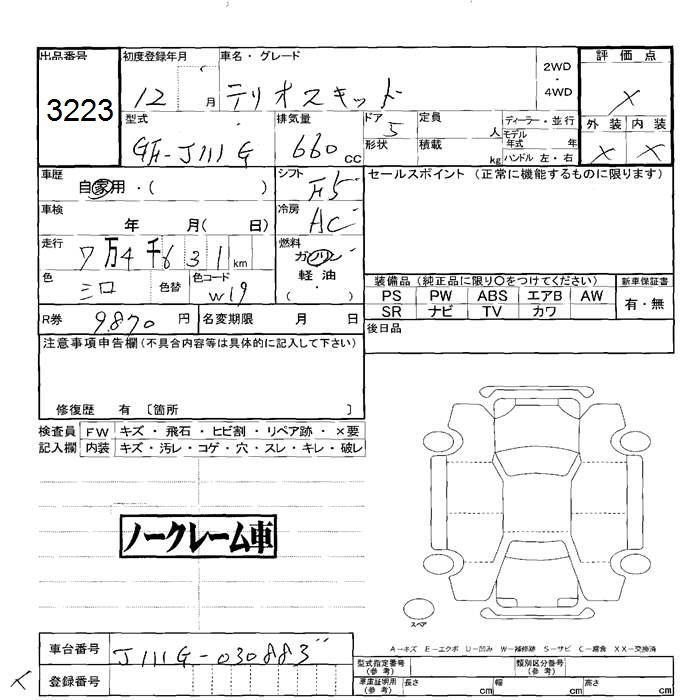 出品番号 初度登録年月 車名・グレード 2WD・4WD 評価点
3223 12 月 テリオスキッド X
型式 排気量 ドア 定員 ディーラー・並行 外装 内装
GH-J111G 660 CC 5 人 モデル年式 年 X X
形状 積載 kg ハンドル 左・右
車歴 自家用・( ) シフト F5 セールスポイント (正常に機能するものに限ります)
車検 年 月( 日) 冷房 AC
走行 7万4千631km 燃料 ガソリン・
色 シロ 色替 色コード W19 軽油・( )
装備品 (純正品に限り〇をつけてください) 新車保証書
PS PW ABS エアB AW 有・無
SR ナビ TV カワ
R券 9,870 円 名変期限 月 日 後日品
注意事項申告欄 (不具合内容等は具体的に記入して下さい)
修復歴 有 〔箇所 〕
検査員 FW キズ・飛石・ヒビ割・リペア跡・×要
記入欄 内装 キズ・汚レ・コゲ・穴・スレ・キレ・破レ
ノークレーム車
スペア
A－キズ E－エクボ U－凹み W－補修跡 S－サビ C－腐食 XX－交換済
車台番号 J111G-030883"
型式指定番号(参考) 類別区分番号(参考)
X 登録番号
車庫証明用(参考) 長さ cm 幅 cm 高さ cm